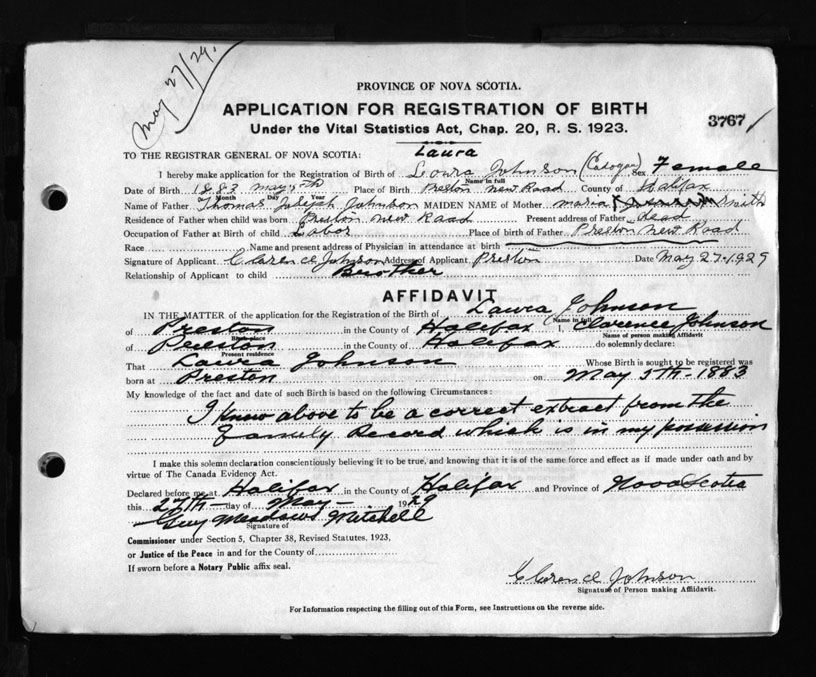 May 27/29.
PROVINCE OF NOVA SCOTIA.
APPLICATION FOR REGISTRATION OF BIRTH
3767
Under the Vital Statistics Act, Chap. 20, R. S. 1923.
Laura
TO THE REGISTRAR GENERAL OF NOVA SCOTIA:
I hereby make application for the Registration of Birth of Loura Johnson Sex Female
Name in full
Date of Birth 1883 May 5th Place of Birth Preston New Road County of Halifax
Month Day Year
Name of Father Thomas Joseph Johnson MAIDEN NAME of Mother Maria Smith
Residence of Father when child was born Preston New Road Present address of Father dead
Occupation of Father at Birth of child Labor Place of birth of Father Preston New Road
Race Name and present address of Physician in attendance at birth
Signature of Applicant Clarence Johnson Address of Applicant Preston Date May 27-1929
Relationship of Applicant to child Brother
AFFIDAVIT
IN THE MATTER of the application for the Registration of the Birth of Laura Johnson
Name in full
of Preston in the County of Halifax I, Clarence Johnson
Birth place Name of person making Affidavit
of Preston in the County of Halifax do solemnly declare:
Present residence
That Laura Johnson Whose Birth is sought to be registered was
born at Preston on May 5th-1883
My knowledge of the fact and date of such Birth is based on the following Circumstances:
I know above to be a correct extract from the
Family Record which is in my possession
I make this solemn declaration conscientiously believing it to be true, and knowing that it is of the same force and effect as if made under oath and by
virtue of The Canada Evidence Act.
Declared before me at Halifax in the County of Halifax and Province of Nova Scotia
this 27th day of May 1929
Guy Meadows Mitchell
Signature of
Commissioner under Section 5, Chapter 38, Revised Statutes, 1923,
or Justice of the Peace in and for the County of
If sworn before a Notary Public affix seal.
Clarence Johnson
Signature of Person making Affidavit.
For Information respecting the filling out of this Form, see Instructions on the reverse side.